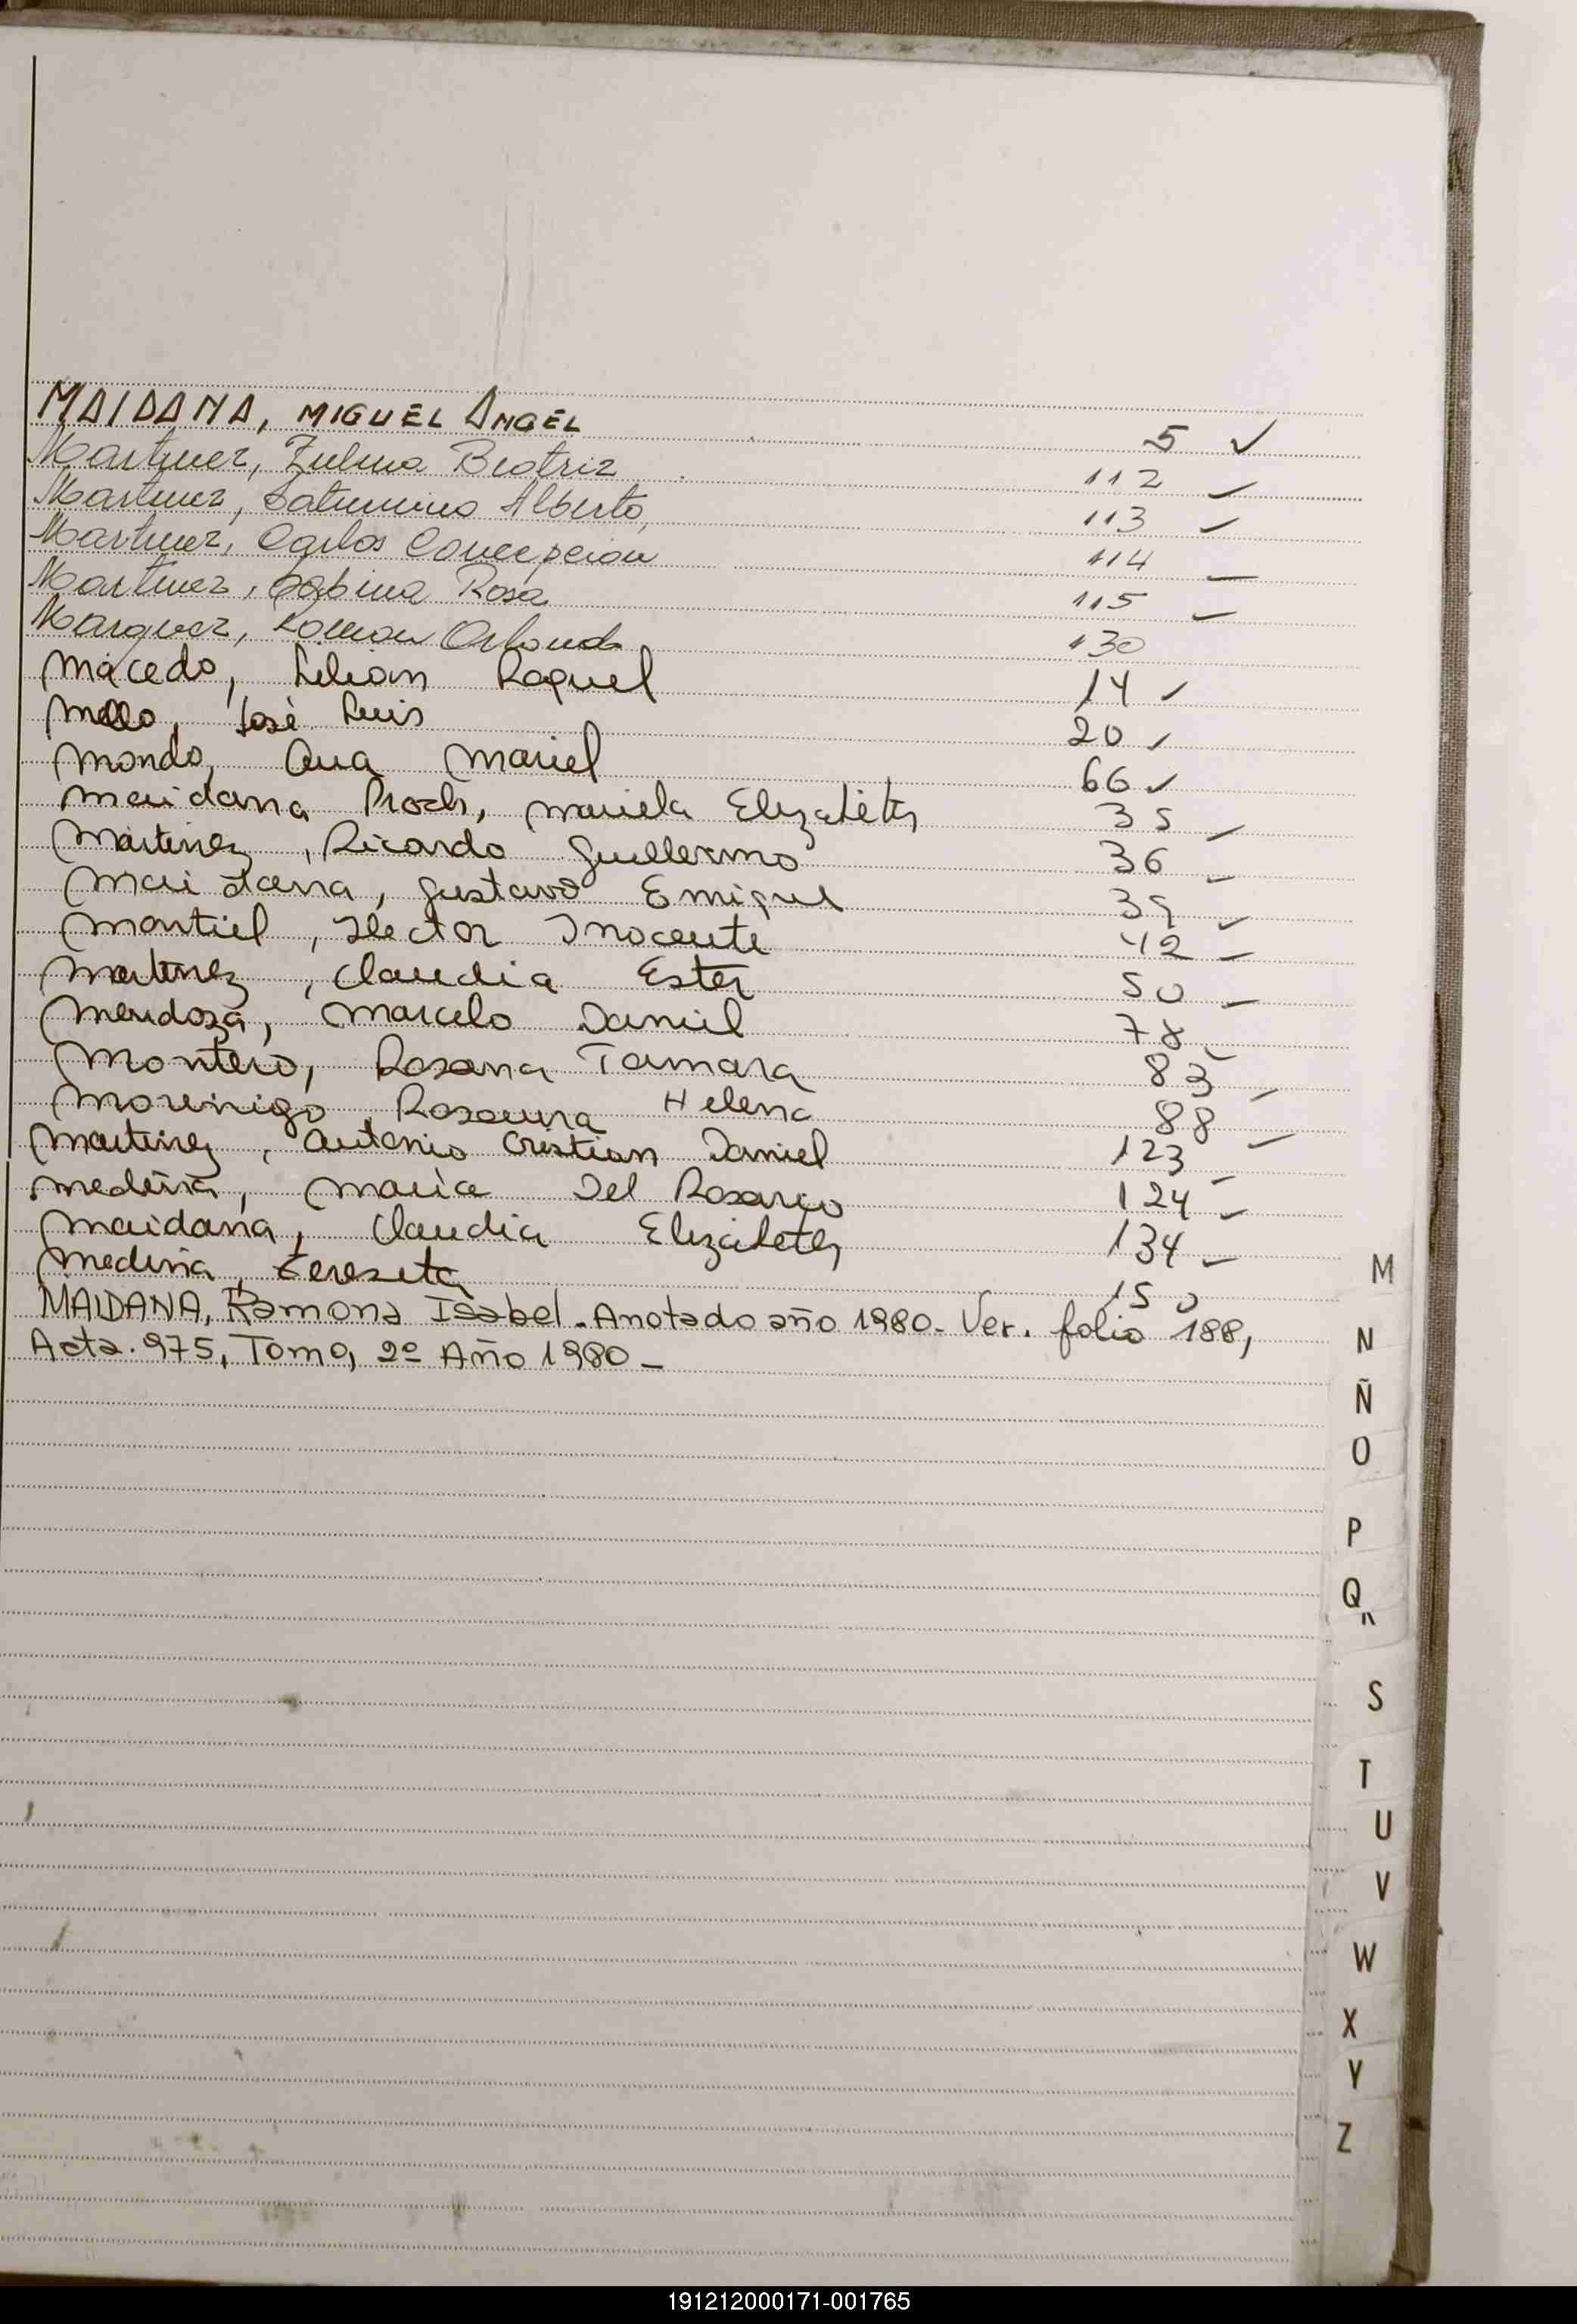 MAIDANA, MIGUEL ANGEL 5 ✓
Martinez, Zulma Beatriz 112 ✓
Martinez, Saturnino Alberto 113 ✓
Martinez, Carlos Concepcion 114 –
Martinez, Sabina Rosa 115 ✓
Marquez, Roman Orlando 130
Macedo, Lilian Raquel 14 ✓
Mello, José Luis 20 ✓
Mondo, Ana Mariel 66 ✓
Maidana, Mariela Elizabeth 35 ✓
Martinez, Ricardo Guillermo 36 ✓
Maidana, Gustavo Emique 39 ✓
Montiel, Hector Inocente 42 ✓
Martinez, Claudia Ester 50 –
Mendoza, Marcelo Daniel 78 –
Montero, Rosana Tamara 83 –
Morinigo, Rosaura Helena 88 –
Martinez, Antonio Cristian Daniel 123 –
Medina, Maria Del Rosario 124 ✓
Maidana, Claudia Elizabeth 134 ✓
Medina, Teresita 150
MAIDANA, Ramona Isabel. Anotado año 1980- Ver. folio 188,
Acta. 975, Tomo, 2º Año 1980 –
M
N
Ñ
O
P
Q
S
T
U
V
W
X
Y
Z
191212000171-001765